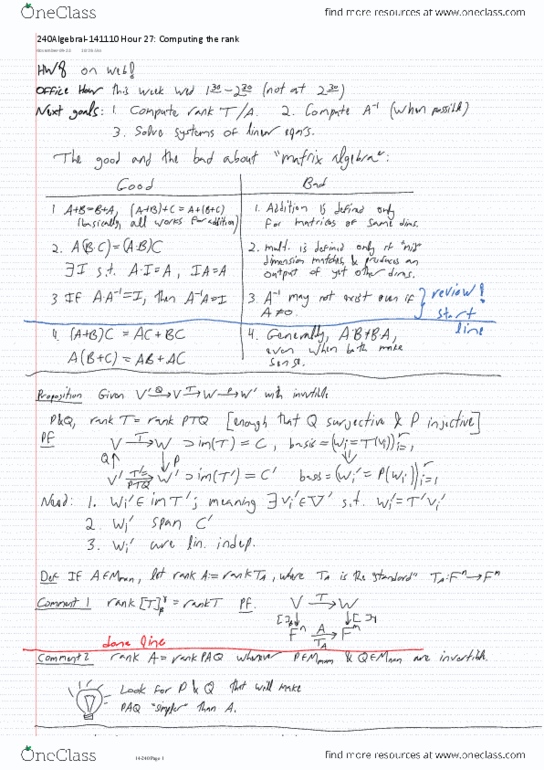 OneClass
find more resources at www.oneclass.com
240AlgebraI-141110 Hour 27: Computing the rank
HW8 on web!
Office Hour this week Wed 1³⁰-2²⁰ (not at 2³⁰)
Next goals: 1. Compute rank T/A. 2. Compute A⁻¹ (when possible)
3. Solve systems of linear eqn's.
The good and the bad about "matrix algebra":
Good Bad
1 A+B=B+A, (A+B)+C = A+(B+C)
(basically, all works for addition)
1. Addition is defined only
for matrices of same dims.
2. A(B·C)=(A·B)C
∃I s.t. A·I=A, IA=A
2. multi. is defined only if "mid"
dimension matches, & produces an
output of yet other dims.
3 If A·A⁻¹=I, then A⁻¹A=I
3. A⁻¹ may not exist even if
A≠0.
review!
start
line
4. (A+B)C = AC+BC
A(B+C) = AB+AC
4. Generally, AB≠BA,
even when both make
sense.
Proposition Given V' Q→ V T→ W P→ W' with invertible
P&Q, rank T = rank PTQ [enough that Q surjective & P injective]
PF
V T→ W ⊃ im(T) = C, basis = (wᵢ=T(vᵢ))ʳᵢ₌₁
Q↑ ↓P
V' T'=PTQ→ W' ⊃ im(T') = C' basis = (wᵢ' = P(wᵢ))ʳᵢ₌₁
Need: 1. wᵢ' ∈ im T'; meaning ∃vᵢ'∈V' s.t. wᵢ'=T'vᵢ'
2. wᵢ' span C'
3. wᵢ' are lin. indep.
Def If A∈Mₘₓₙ, let rank A := rank T_A, where T_A is the "standard" T_A: Fⁿ→Fᵐ
Comment 1 rank [T]ᵧᵦ = rank T PF.
V T→ W
Fⁿ A→ Fᵐ
T_A
done line
Comment 2 rank A = rank PAQ whenever P∈Mₘₓₘ & Q∈Mₙₓₙ are invertible.
Look for P & Q that will make
PAQ "simpler" than A.
14-240 Page 1
OneClass
find more resources at www.oneclass.com